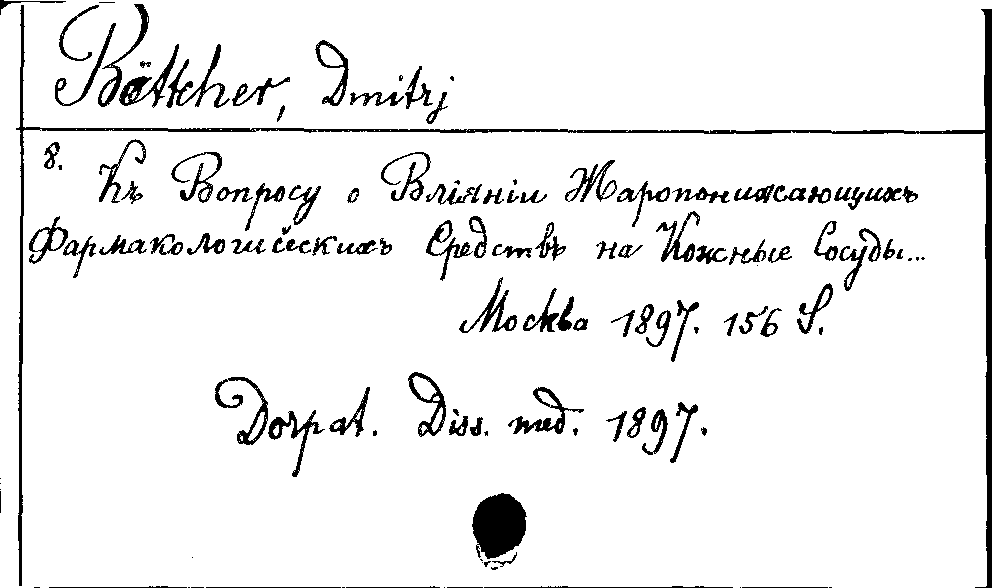 Böttcher, Dmitrj
8. Къ Вопросу о Влiянiи Жаропонижающихъ
Фармакологическихъ Средствъ на Кожные Сосуды...
Москва 1897. 156 S.
Dorpat. Diss. med. 1897.